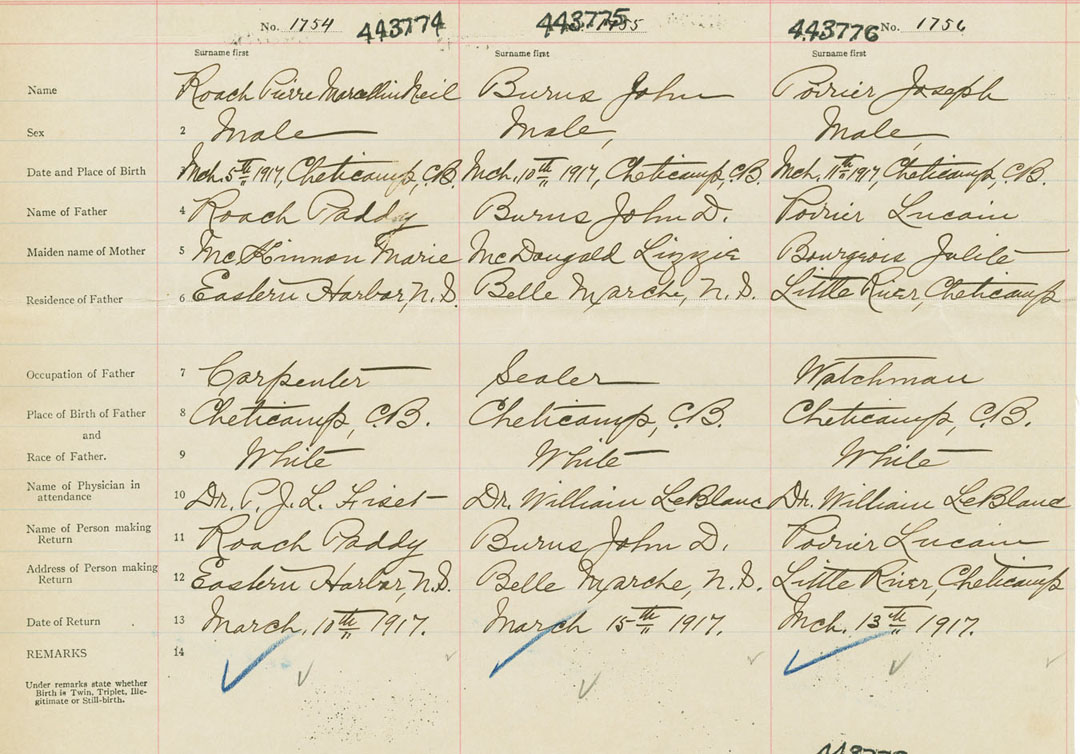 No. 1754 443774 443775 1755 443776 No. 1756
Surname first Surname first Surname first
Name Roach Pierre Marcellin Neil Burns John Poirier Joseph
Sex 2 Male Male, Male,
Date and Place of Birth Mch. 5th 1917, Cheticamp, C.B. Mch. 10th 1917, Cheticamp, C.B. Mch. 11th 1917, Cheticamp, C.B.
Name of Father 4 Roach Paddy Burns John D. Poirier Lucain
Maiden name of Mother 5 McKinnon Marie McDougald Lizzie Bourgeois Julite
Residence of Father 6 Eastern Harbor, N.S. Belle Marche, N.S. Little River, Cheticamp
Occupation of Father 7 Carpenter Sealer Watchman
Place of Birth of Father 8 Cheticamp, C.B. Cheticamp, C.B. Cheticamp, C.B.
and
Race of Father. 9 White White White
Name of Physician in
attendance 10 Dr. P. J. L. Fiset Dr. William LeBlanc Dr. William LeBlanc
Name of Person making
Return 11 Roach Paddy Burns John D. Poirier Lucain
Address of Person making
Return 12 Eastern Harbor, N.S. Belle Marche, N.S. Little River, Cheticamp
Date of Return 13 March, 10th 1917. March 15th 1917. Mch. 13th 1917.
REMARKS 14
Under remarks state whether
Birth is Twin, Triplet, Ille-
gitimate or Still-birth.